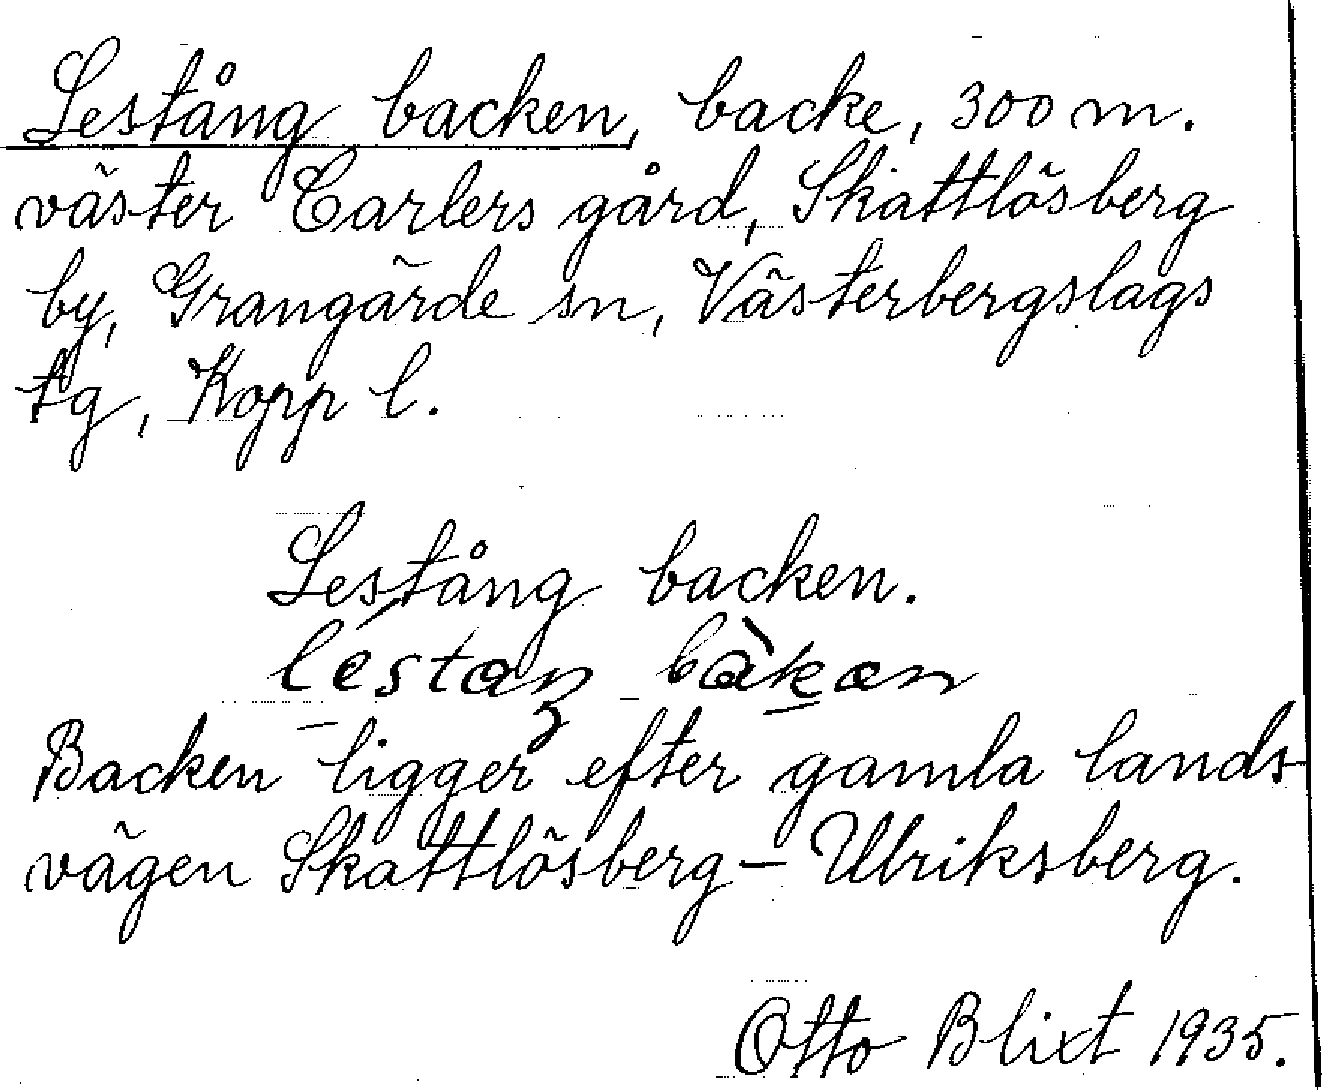 Lestång backen, backe, 300 m.
väster Carlers gård, Skattlösberg
by, Grangärde sn, Västerbergslags
tg, Kopp l.
Lestång backen.
léstaŋ bàkæn
Backen ligger efter gamla lands-
vägen Skattlösberg – Ulriksberg.
Otto Blixt 1935.